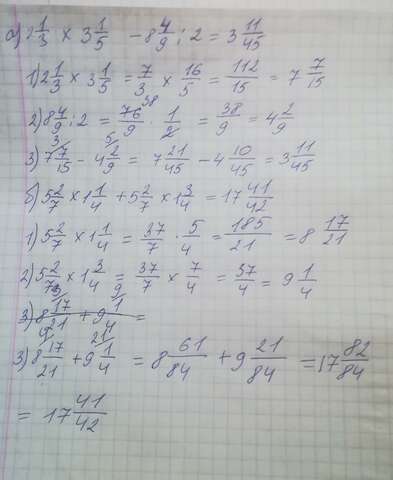 а) 2 1/3 × 3 1/5 - 8 4/9 : 2 = 3 11/45
1) 2 1/3 × 3 1/5 = 7/3 × 16/5 = 112/15 = 7 7/15
2) 8 4/9 : 2 = 76/9 38 · 1/2 = 38/9 = 4 2/9
3) 7 7/15 3 - 4 2/9 5 = 7 21/45 - 4 10/45 = 3 11/45
б) 5 2/7 × 1 1/4 + 5 2/7 × 1 3/4 = 17 41/42
1) 5 2/7 × 1 1/4 = 37/7 · 5/4 = 185/21 = 8 17/21
2) 5 2/7 × 1 3/4 = 37/7 × 7/4 = 37/4 = 9 1/4
3) 8 17/21 + 9 1/4 =
3) 8 17/21 4 + 9 1/4 21 = 8 61/84 + 9 21/84 = 17 82/84
= 17 41/42